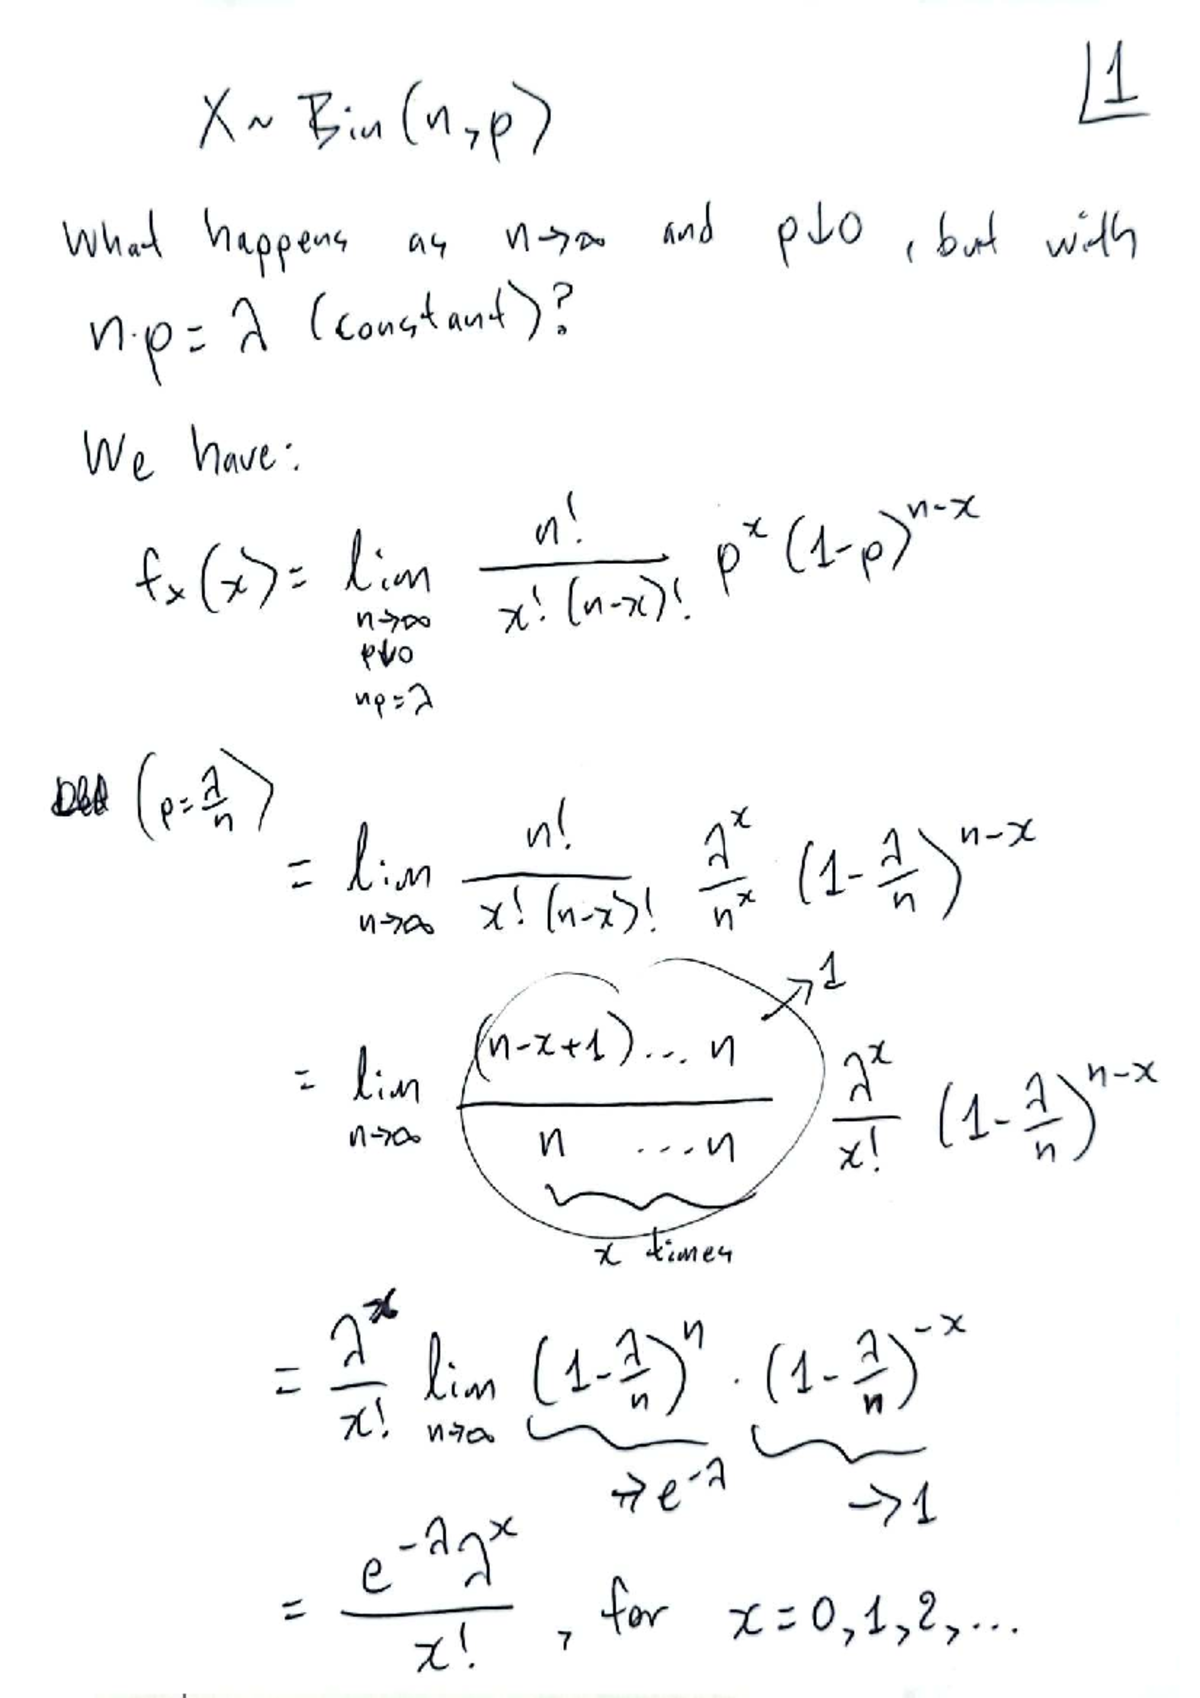 1
X ~ Bin(n,p)
What happens as n→∞ and p↓0, but with
n·p = λ (constant)?
We have:
f_X(x) = lim_{n→∞, p↓0, np=λ} n!/(x!(n-x)!) p^x (1-p)^{n-x}
(p=λ/n)
= lim_{n→∞} n!/(x!(n-x)!) λ^x/n^x (1-λ/n)^{n-x}
→1
= lim_{n→∞} ((n-x+1)...n)/(n ...n) λ^x/x! (1-λ/n)^{n-x}
x times
= λ^x/x! lim_{n→∞} (1-λ/n)^n · (1-λ/n)^{-x}
→e^{-λ} →1
= e^{-λ}λ^x/x! , for x=0,1,2,...